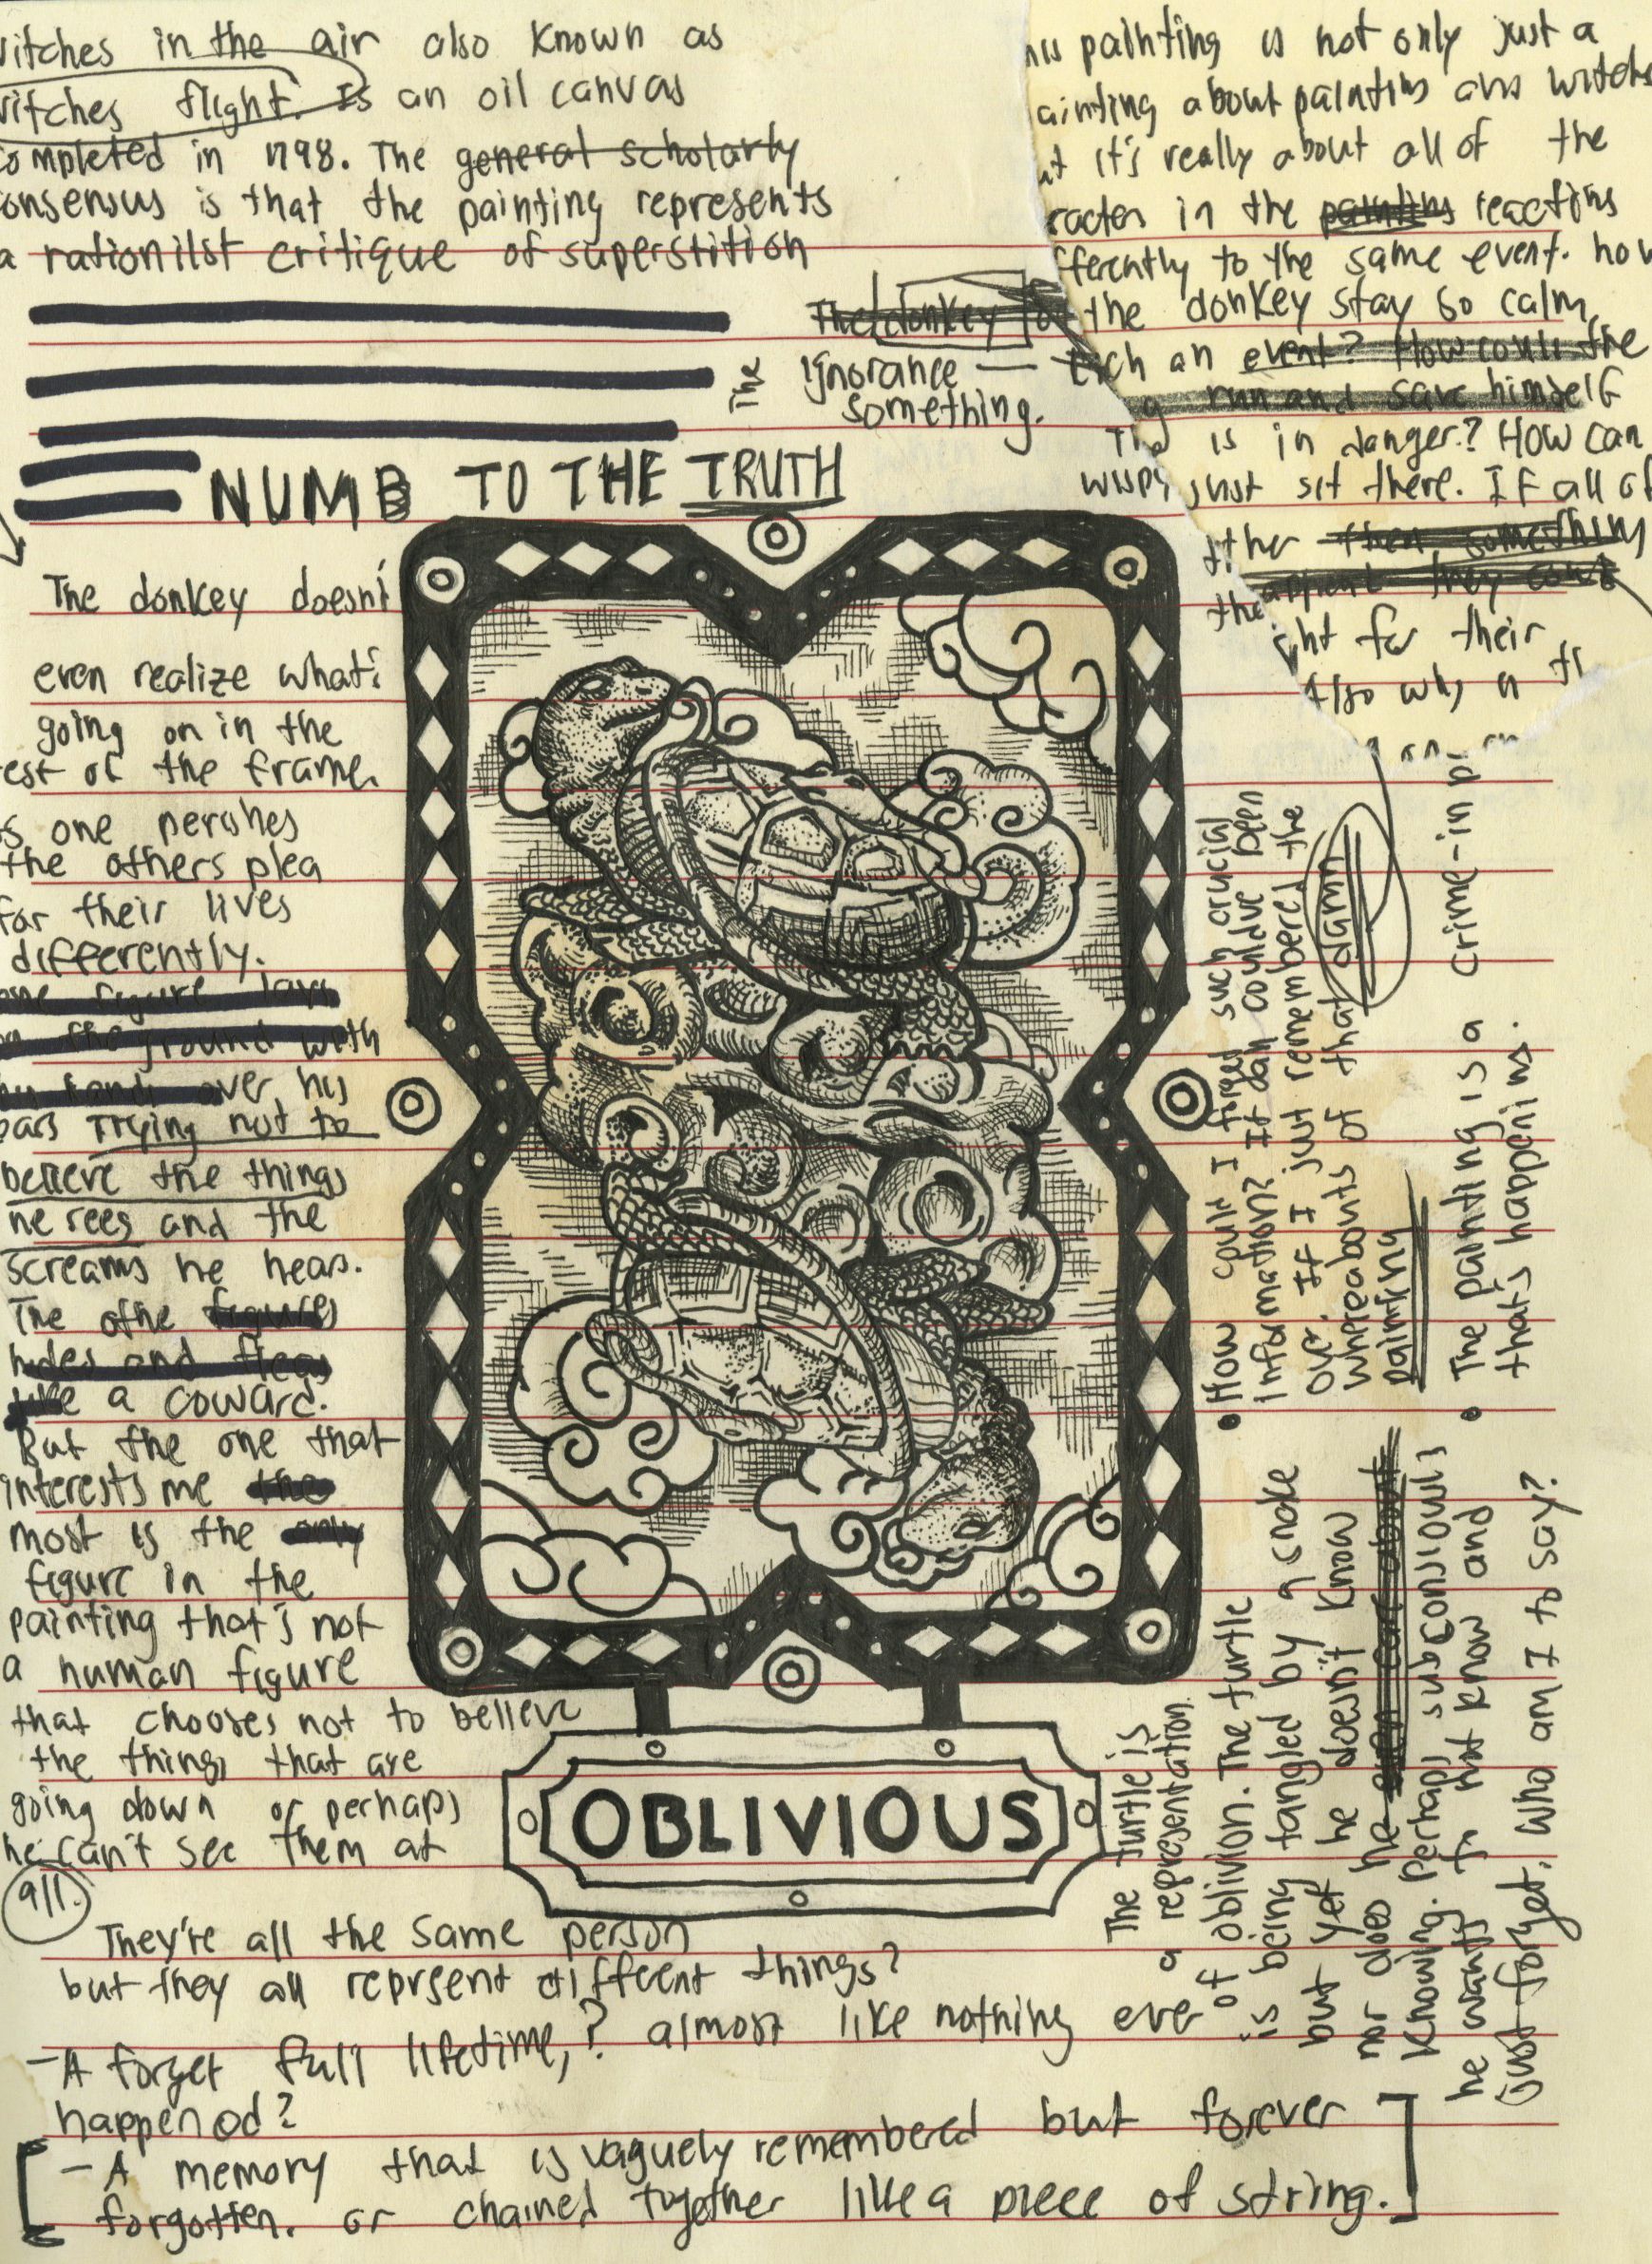 vitches in the air also known as
vitches flight. Is an oil canvas
completed in 1798. The general scholarly
onsensus is that the painting represents
a rationilst critique of superstition
The donkey
The
ignorance —
something.
NUMB TO THE TRUTH
The donkey doesn't
even realize what's
going on in the
rest of the frame.
as one perishes
the others plea
for their lives
differently.
one figure lays
on the ground with
his hands over his
ears trying not to
believe the things
he sees and the
screams he hears.
The othe figures
hides and flees
like a coward.
But the one that
interests me the
most is the only
figure in the
painting that's not
a human figure
that chooses not to believe
the things that are
going down or perhaps
he can't see them at
all.
his painting is not only just a
ainting about painting and witche
ut it's really about all of the
racter in the painting reactions
fferently to the same event. how
the donkey stay so calm
such an event? How could the
run and save himself
is in danger? How can
wisps just sit there. If all of
ther then something
the they cont
ght for their
Also why a
OBLIVIOUS
• How could I forget such crucial
information? It can could've been
over. If I just remembered the
whereabouts of that damn
painting
• The painting is a crime-in
that's happening.
The turtle is
a representation
of oblivion. The turtle
is being tangled by a snake
but yet he doesn't know
nor does he even care about
knowing. Perhaps subconsiously
he wants to not know and
just forget. Who am I to say?
They're all the same person
but they all reprsent diffent things?
- A forget full lifetime,? almost like nothing ever
happenod?
[- A memory that is vaguely remembered but forever
forgotten. or chained together like a piece of string.]